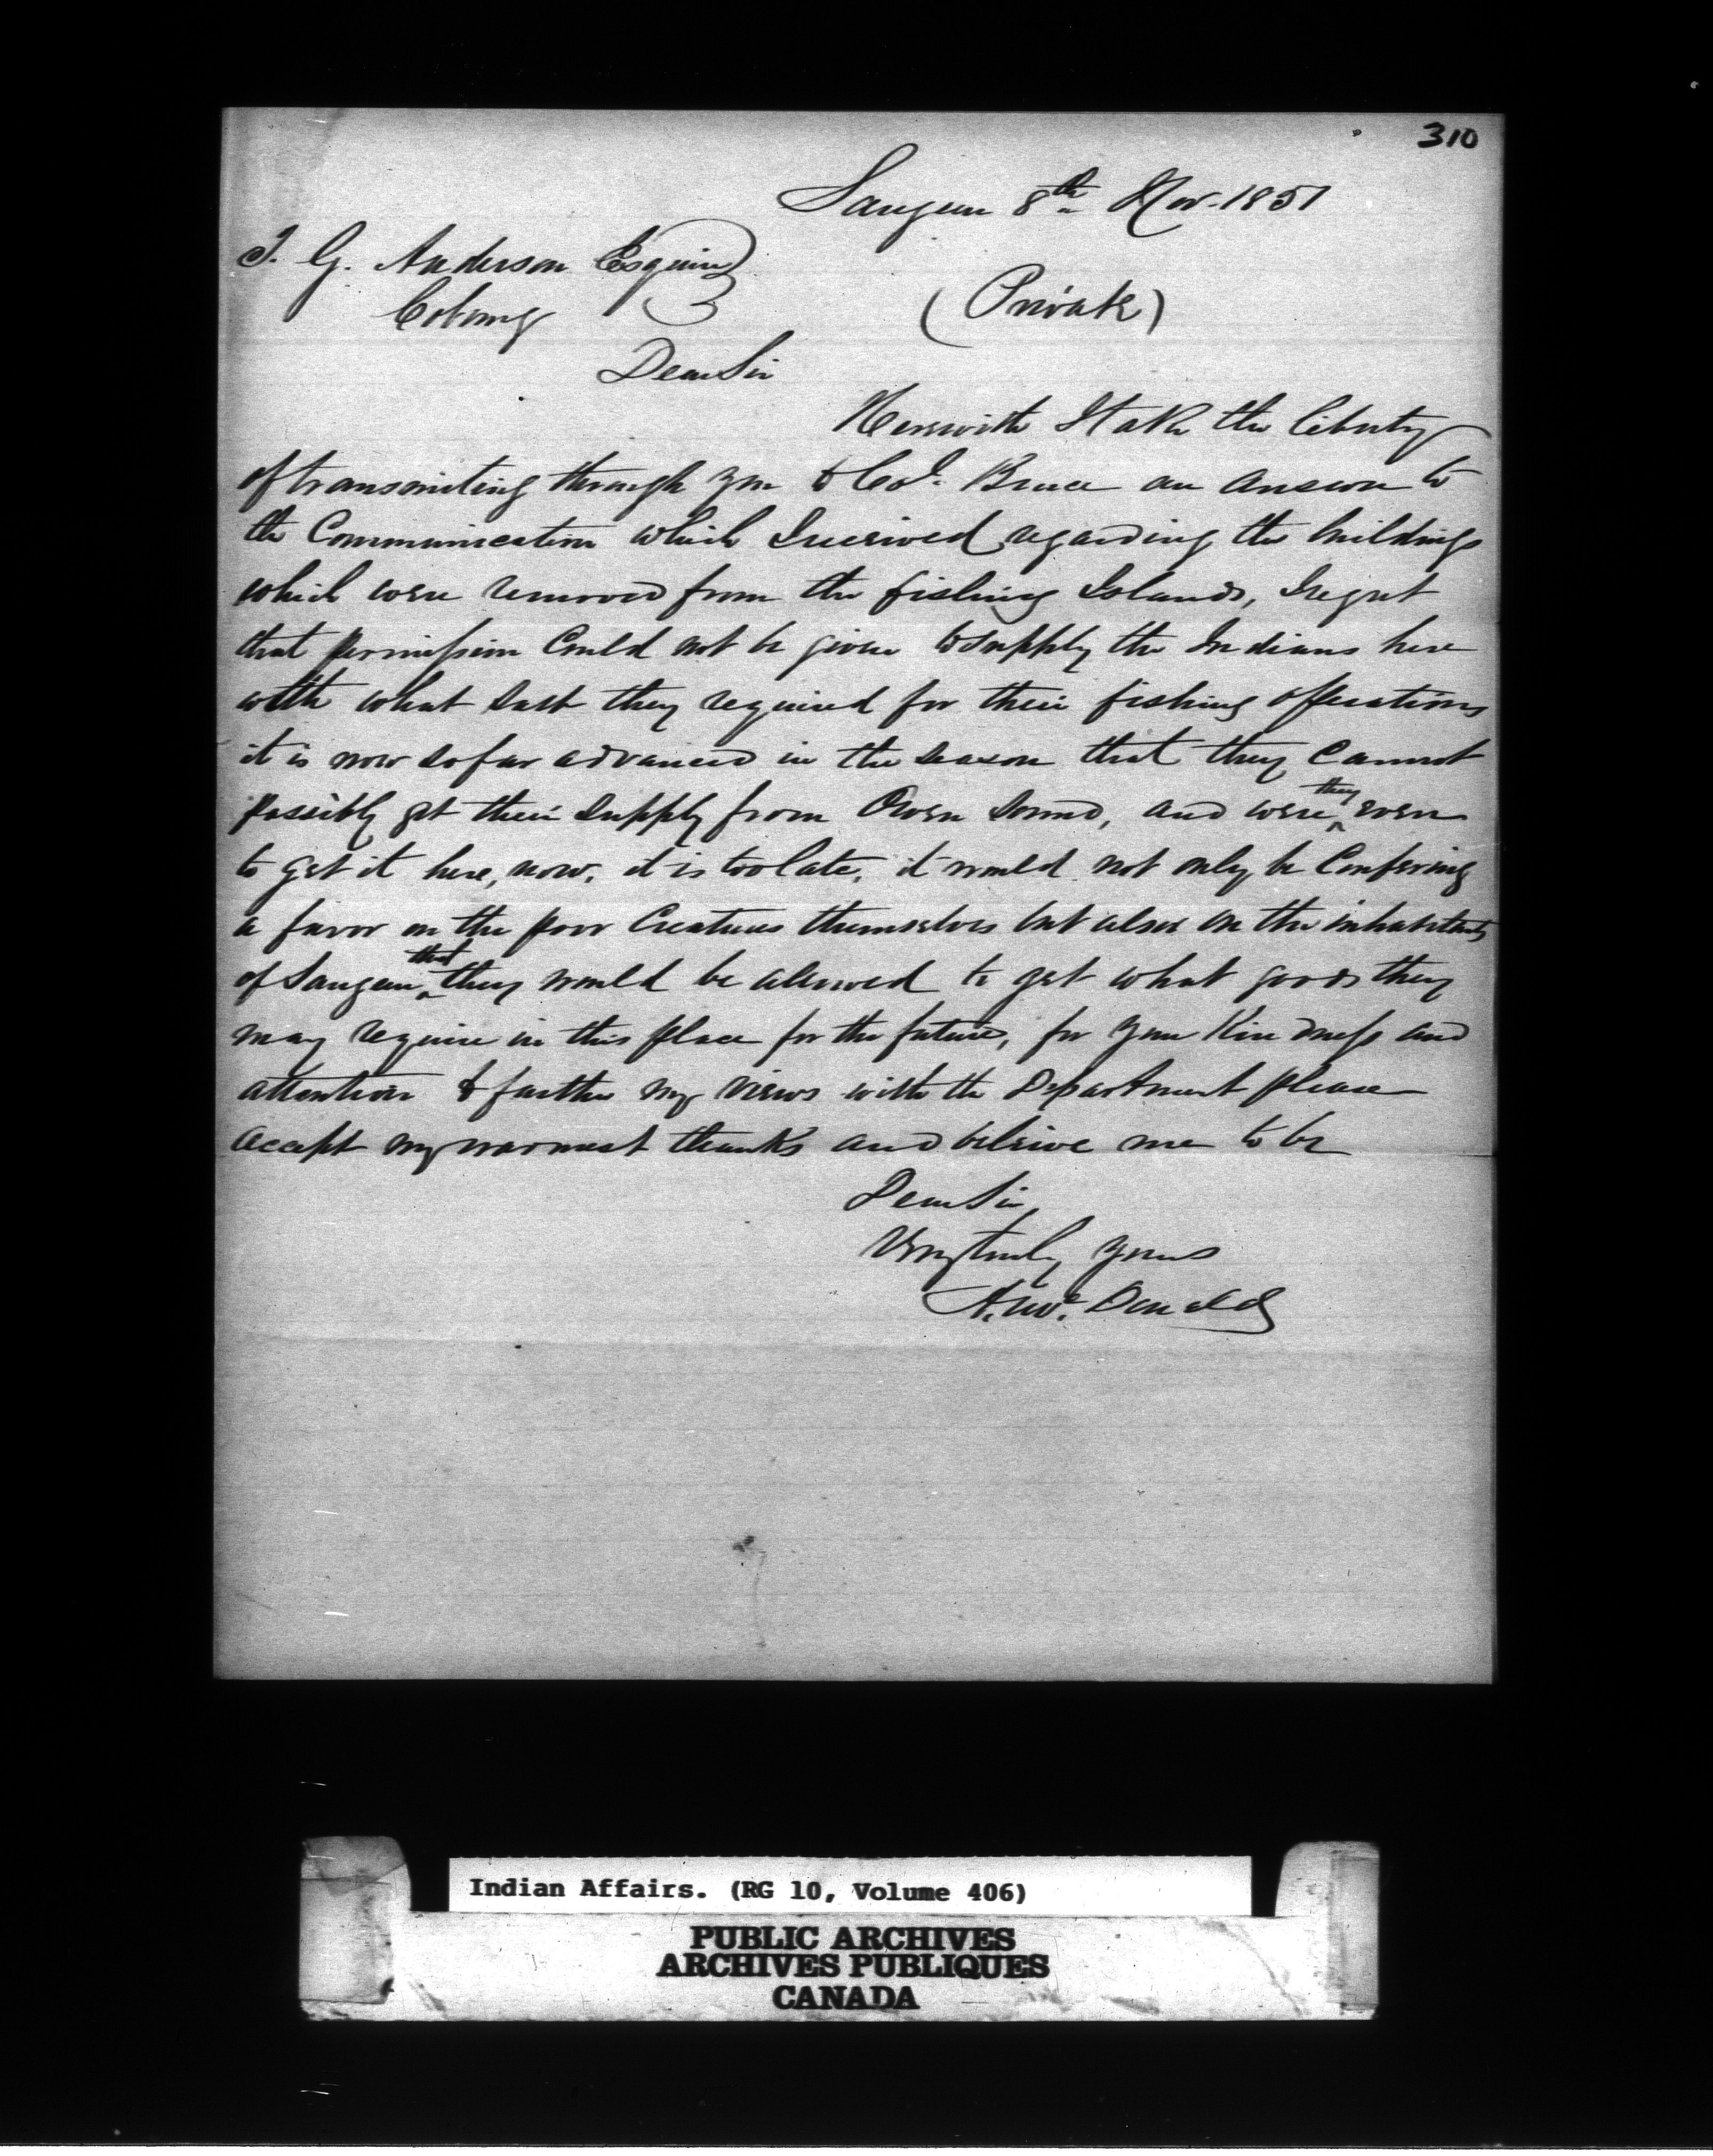 310
Saugeen 8th Nov. 1851
T. G. Anderson Esquire
Cobourg
(Private)
Dear Sir
Herewith I take the liberty
of transmiting through you to Col. Bruce an answer to
the Communication which I received regarding the buildings
which were removed from the fishing Islands, I regret
that permission Could not be given to supply the Indians here
with what Salt they required for their fishing operations
it is now so far advanced in the season that they Cannot
possibly get their Supply from Owen Sound, and were they even
to get it here, now, it is too late, it would not only be Confering
a favor on the poor Creatures themselves but also on the inhabitants
of Saugeen that they would be allowed to get what goods they
may require in this place for the future, for your Kindness and
attention to farther my views with the Department please
accept my warmest thanks and beleive me to be
Dear Sir
Very truly yours
Donald
Indian Affairs. (RG 10, Volume 406)
PUBLIC ARCHIVES
ARCHIVES PUBLIQUES
CANADA